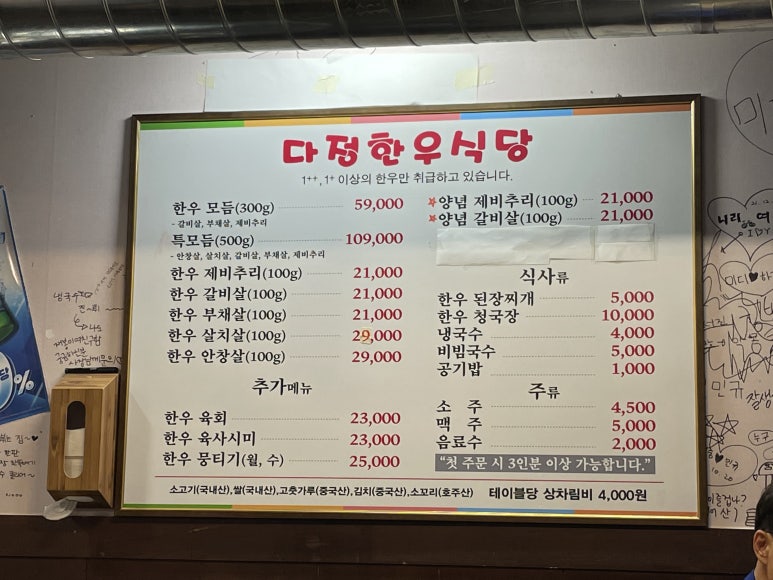 다정한우식당
1++, 1+ 이상의 한우만 취급하고 있습니다.
한우 모듬(300g) 59,000
- 갈비살, 부채살, 제비추리
특모듬(500g) 109,000
- 안창살, 살치살, 갈비살, 부채살, 제비추리
한우 제비추리(100g) 21,000
한우 갈비살(100g) 21,000
한우 부채살(100g) 21,000
한우 살치살(100g) 29,000
한우 안창살(100g) 29,000
추가메뉴
한우 육회 23,000
한우 육사시미 23,000
한우 뭉티기(월, 수) 25,000
양념 제비추리(100g) 21,000
양념 갈비살(100g) 21,000
식사류
한우 된장찌개 5,000
한우 청국장 10,000
냉국수 4,000
비빔국수 5,000
공기밥 1,000
주류
소 주 4,500
맥 주 5,000
음료수 2,000
"첫 주문 시 3인분 이상 가능합니다."
소고기(국내산),쌀(국내산),고춧가루(중국산),김치(중국산),소꼬리(호주산) 테이블당 상차림비 4,000원
냉국수
민규